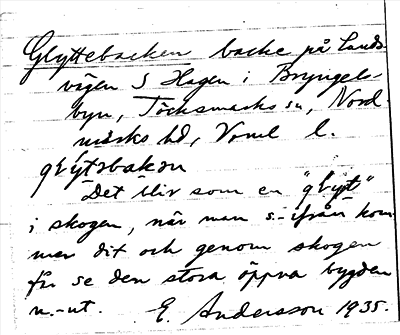 Glyttebacken backe på Lands-
vägen S Hagen i Bryngels-
byn, Töcksmarks sn, Nord-
marks hd, Vrml l.
glýtsbakɑn
Det blir som en "glýt"
i skogen, när man s.-ifrån kom-
mer dit och genom skogen
får se den stora öppna bygden
n.-ut. E. Andersson 1935.